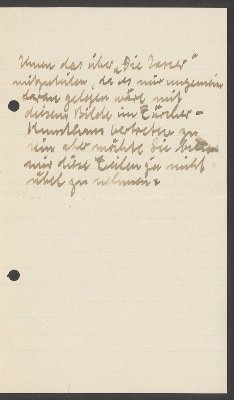 Ihnen das über „Die Tänzer"
mitzuteilen, da es mir ungemein
daran gelegen wäre mit
diesem Bilde im Zürcher-
Kunsthaus vertreten zu
sein aber möchte Sie bitten
mir diese Zeilen ja nicht
übel zu nehmen.